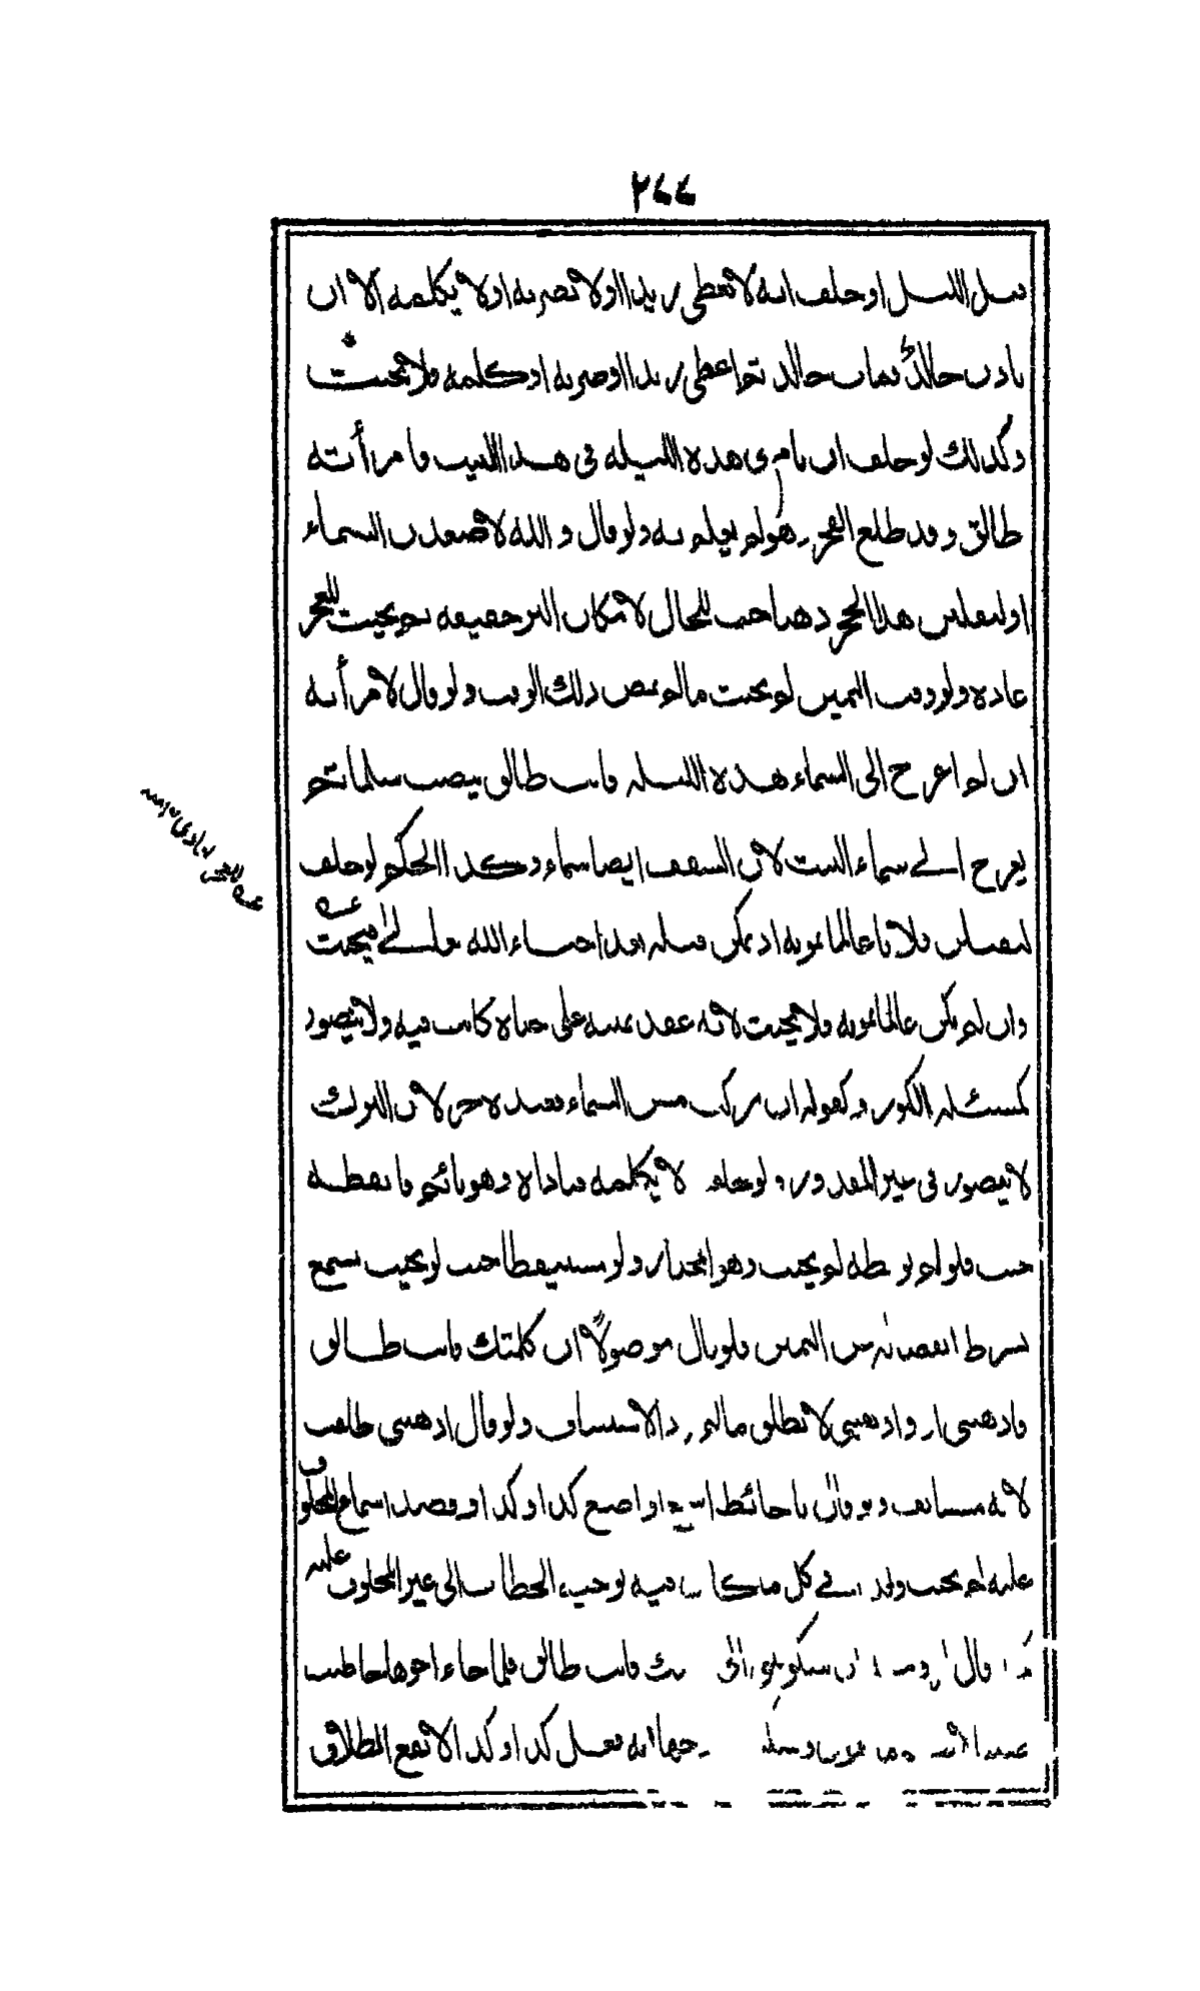 ٢٤٤
قبل الليل او حلف انه لا تعطى زيدا او لا تضربه او لا يكلمه الا ان
ياذن خالد فمات خالد ثم اعطى زيدا او ضربه او كلمه فلا يحنث
وكذلك لو حلف ان نامى هذه الليلة فى هذا البيت فامرأته
طالق وقد طلع الفجر وهو لم يعلم به ولو قال والله لاصعدن السماء
او ليقلبن هذا الحجر ذهبا حنث للحال لامكان البر حقيقة ثم يحنث للعجز
عادة ولو وقت اليمين لم يحنث ما لم يمض ذلك الوقت ولو قال لامرأته
ان لم اعرج الى السماء هذه الليلة فانت طالق ينصب سلما ثم
يعرج الى سماء البيت لان السقف ايضا سماء وكذا الحكم لو حلف
ليقتلن فلانا عالما بموته اذ يمكن قتله بعد احياء الله تعالى فيحنث
وان لم يكن عالما بموته فلا يحنث لانه عقد يمينه على حياة كانت فيه ولا يتصور
كمسئلة الكوز وكقوله ان تركت مس السماء فعبده حر لان الترك
لا يتصور فى غير المقدور ولو حلف لا يكلمه فناداه وهو نائم فايقظه
حنث فلو لم يوقظه لم يحنث وهو المختار ولو مستيقظا حنث لو بحيث يسمع
بشرط انفصاله عن اليمين فلو قال موصولا ان كلمتك فانت طالق
فاذهبى او واذهبى لا تطلق ما لم يرد الاستيناف ولو قال اذهبى طلقت
لانه مستانف ولو قال يا حائط اسمع او اصنع كذا او كذا وقصد اسماع المحلوف
عليه لم يحنث وقد فى كل مكان فيه توجيه الخطاب الى غير المحلوف عليه
قال ان شكوت الى فانت طالق فلما جاء اخوها خاطبت
زوجها انه فعل كذا وكذا لا يقع الطلاق